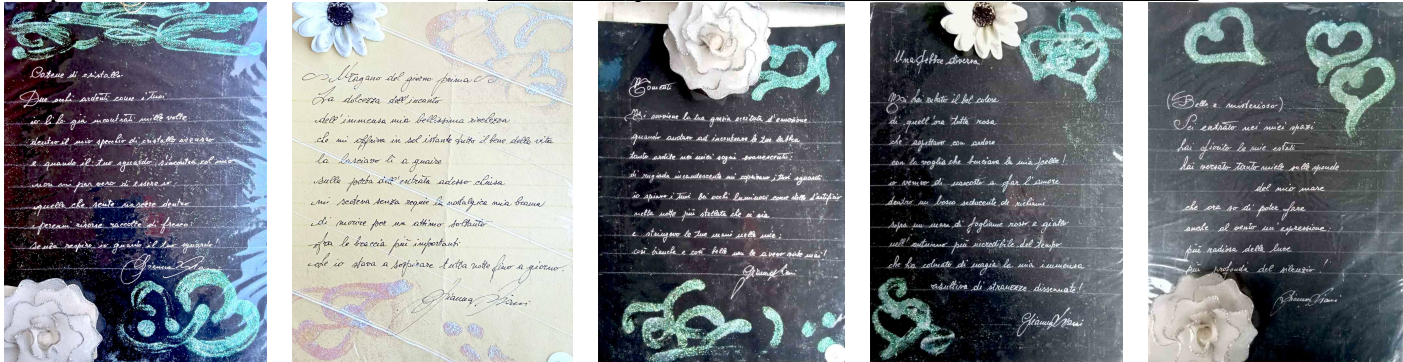 Catene di cristallo
Due occhi ardenti come i tuoi
io li ho già incontrati mille volte
dentro il mio specchio di cristallo
e quando il tuo sguardo s'incontra col mio
non mi par vero di essere io
quella che sente nascere dentro
perenni risorse raccolte di fresco
senza respiro io guardo il tuo sguardo!
Gianna
Magano del giorno prima
La dolcezza dell'incanto
dell'immensa mia bellissima ricchezza
che mi offriva in sol istante tutto il bene della vita
la lasciavo lì a guaire
sulla porta dell'entrata adesso chiusa
mi scoteva senza requie la nostalgica mia brama
di morire per un attimo soltanto
fra le braccia più importanti
che io stava a sospirare tutta notte fino a giorno.
Gianna
Momenti
Mi sovviene la tua grazia eccitata d'emozione
quando andavo ad incontrare le tue labbra
tanto ardite nei miei sogni evanescenti:
di rugiada incandescente mi coprivano i tuoi sguardi
io spiavo i tuoi bei occhi luminosi come stelle
nella notte più stellata che ci sia
e stringevo le tue mani nelle mie:
così bianche e così belle non le avevo viste mai!
Gianna
Una febbre diversa
Mi hai rubato il bel colore
di quell'ora tutta rosa
che aspettavo con ardore
con la voglia che bruciava la mia pelle!
io venivo di nascosto a far l'amore
dentro un bosco seducente di richiami
sopra un mare di fogliame rosso e giallo
nell'autunno più incredibile del tempo
che ha colmato di magia la mia immensa
di stranezze dissennate!
Gianna
(Bello e misterioso)
Sei entrato nei miei spazi
hai fiorito le mie estati
hai versato tanto miele sulle sponde
del mio mare
che ora so di poter fare
anche al vento un'espressione:
più radiosa della luce
più profonda del silenzio!
Gianna